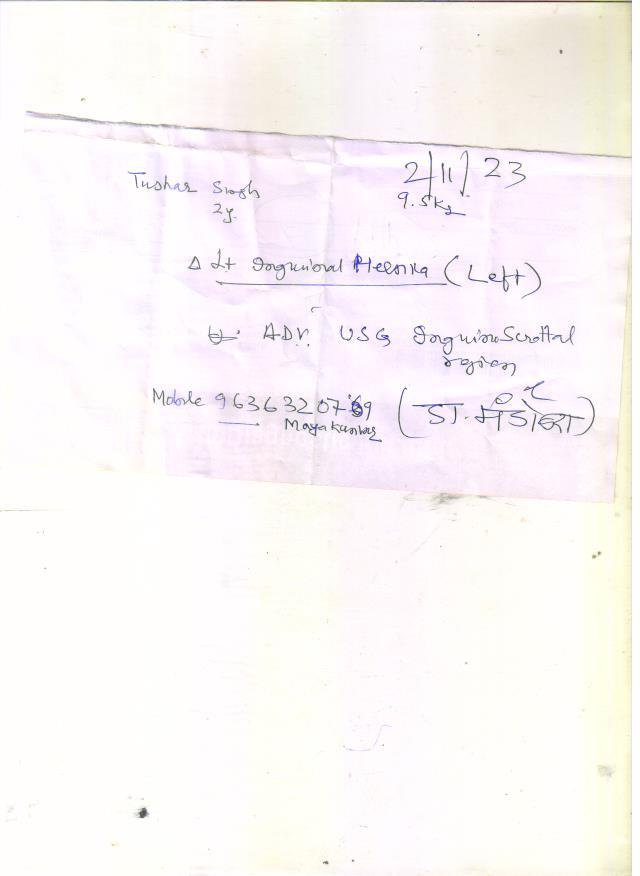 Tushar Singh
2/11/23
2y.
9.5Kg
Δ Lt Inguinal Hernia (Left)
ADV. USG Inguino Scrotal
region
Mobile 9636320769 (डॉ.
Maya Kunwar